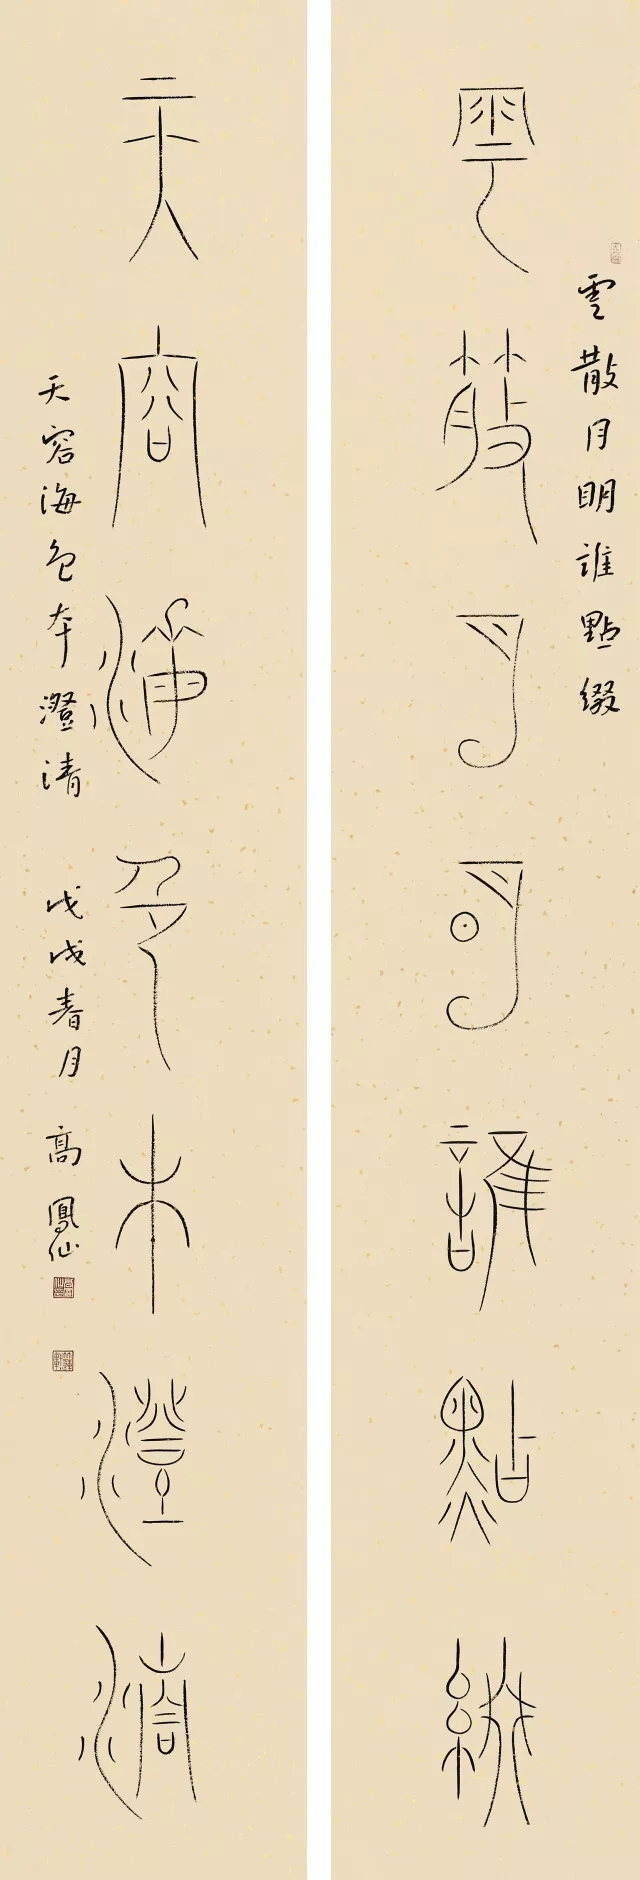 雲散月明誰點綴
雲散月明誰點綴
天容海色本澄清
天容海色本澄清
戊戌春月 高鳳仙